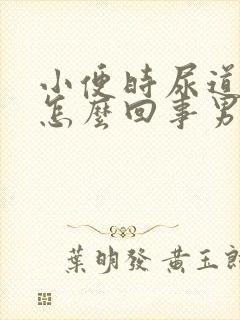 小便時尿道
怎麼回事男
葉明發 黃玉郎